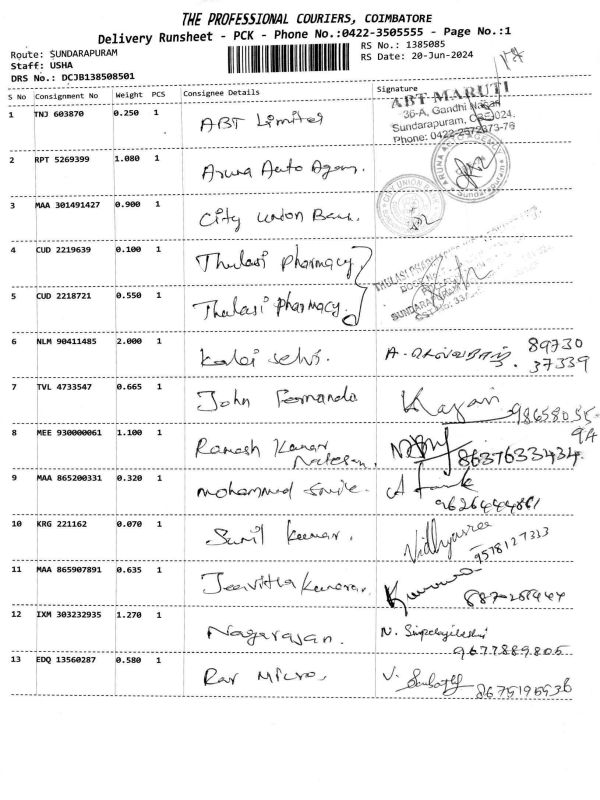 THE PROFESSIONAL COURIERS, COIMBATORE
Delivery Runsheet - PCK - Phone No.:0422-3505555 - Page No.:1
Route: SUNDARAPURAM
RS No.: 1385085
Staff: USHA
RS Date: 20-Jun-2024
DRS No.: DCJB138508501
S No Consignment No Weight PCS Consignee Details Signature
1 TNJ 603870 0.250 1 ABT Limited
ABT MARUTI
36-A, Gandhi Nagar
Sundarapuram, CBE-024.
Phone: 0422-2672373-76
2 RPT 5269399 1.080 1 Aruna Auto Agen.
3 MAA 301491427 0.900 1 City Union Bank.
4 CUD 2219639 0.100 1 Thulasi Pharmacy
5 CUD 2218721 0.550 1 Thulasi Pharmacy.
6 NLM 90411485 2.000 1 Kalai selvi. 89730
37339
7 TVL 4733547 0.665 1 John Fernando Kayan
8 MEE 930000061 1.100 1 Ramesh Kumar
Natesan. 8637633434
9 MAA 865200331 0.320 1 Mohammed
10 KRG 221162 0.070 1 Sunil Kumar. Vidhyasree
9578127313
11 MAA 865907891 0.635 1
12 IXM 303232935 1.270 1 Nagarajan. N.
9677889805
13 EDQ 13560287 0.580 1 Rar Micro. V.